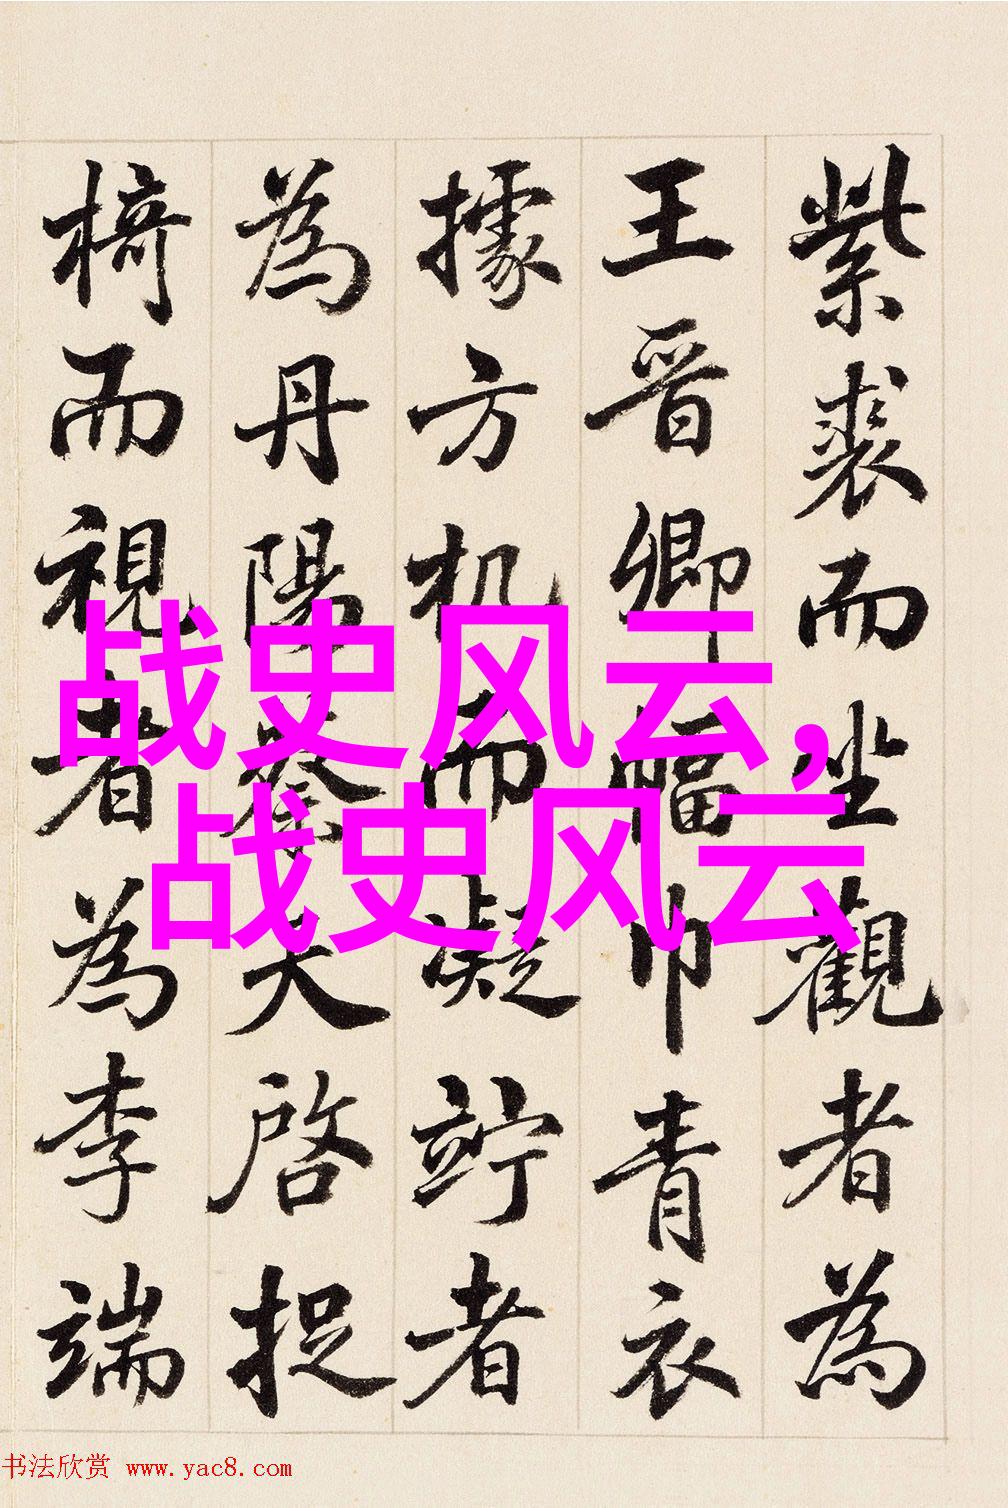 紫裘而坐觀者為
王晋卿幅巾青衣
據方机而凝竚者
為丹陽蔡天启捉
椅而視者為李端
战史风云,
战史风云
书法欣赏 www.yac8.com